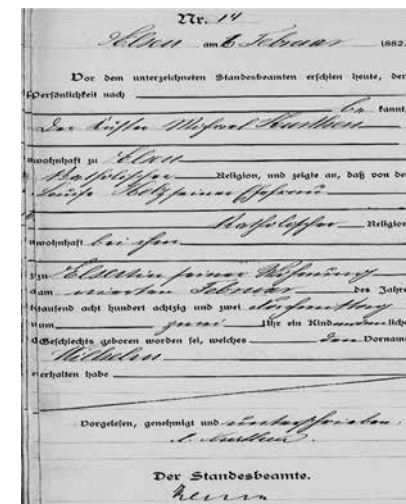 Nr. 14
Elsen am 6 Februar 1882.
Vor dem unterzeichneten Standesbeamten erschien heute, der
Persönlichkeit nach
be kannt,
Der Michael
wohnhaft zu Elsen
katholischer Religion, und zeigte an, daß von der
seiner Ehefrau
katholischer Religion
wohnhaft bei ihm
zu Elsen in seiner Wohnung
am vierten Februar des Jahres
tausend acht hundert achtzig und zwei
um zwei Uhr ein Kind männliche
Geschlechts geboren worden sei, welches den Vorname
Wilhelm
erhalten habe
Vorgelesen, genehmigt und unterschrieben.
Der Standesbeamte.